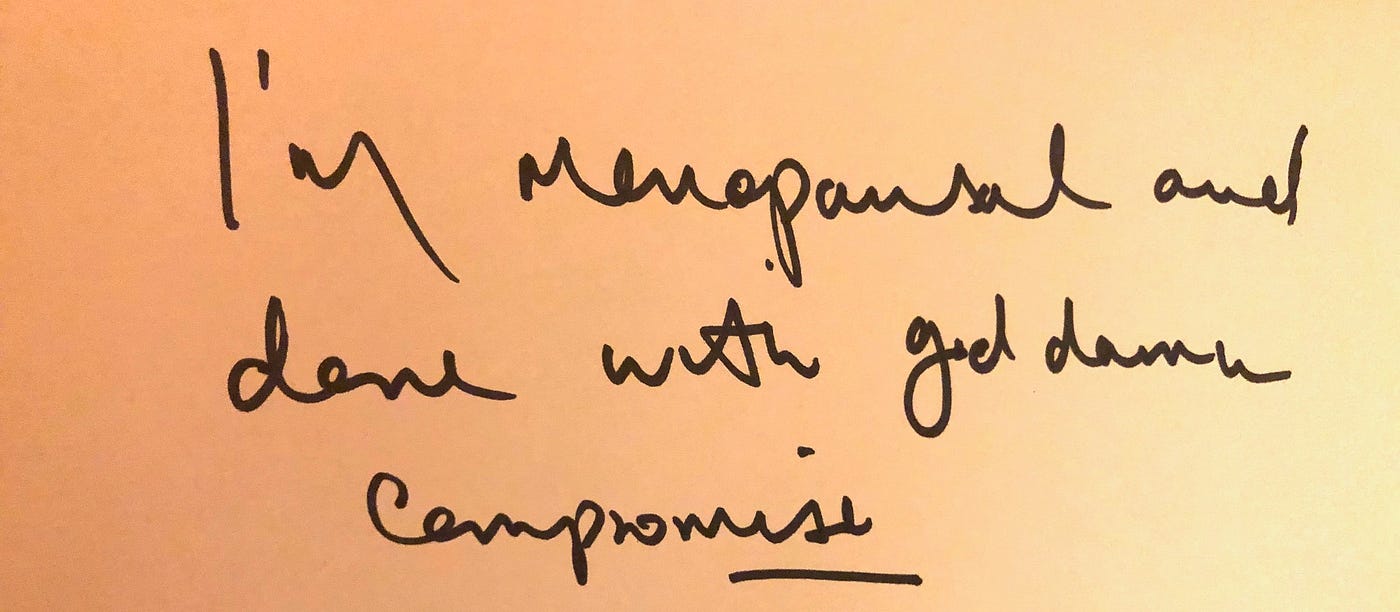 I'm menopausal and
done with god damn
compromise